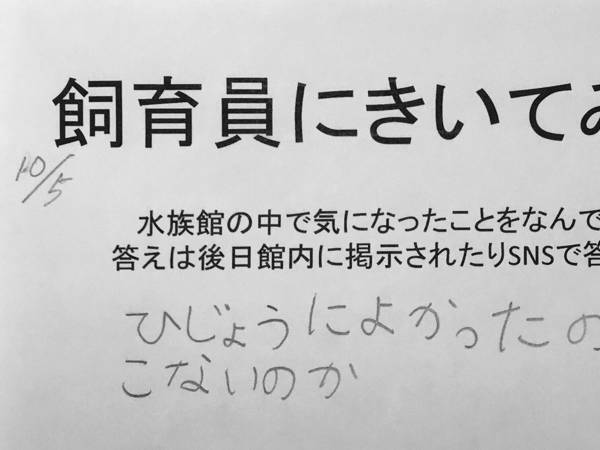 飼育員にきいてみ
10/5
水族館の中で気になったことをなんで
答えは後日館内に掲示されたりSNSで答
ひじょうによかったの
こないのか